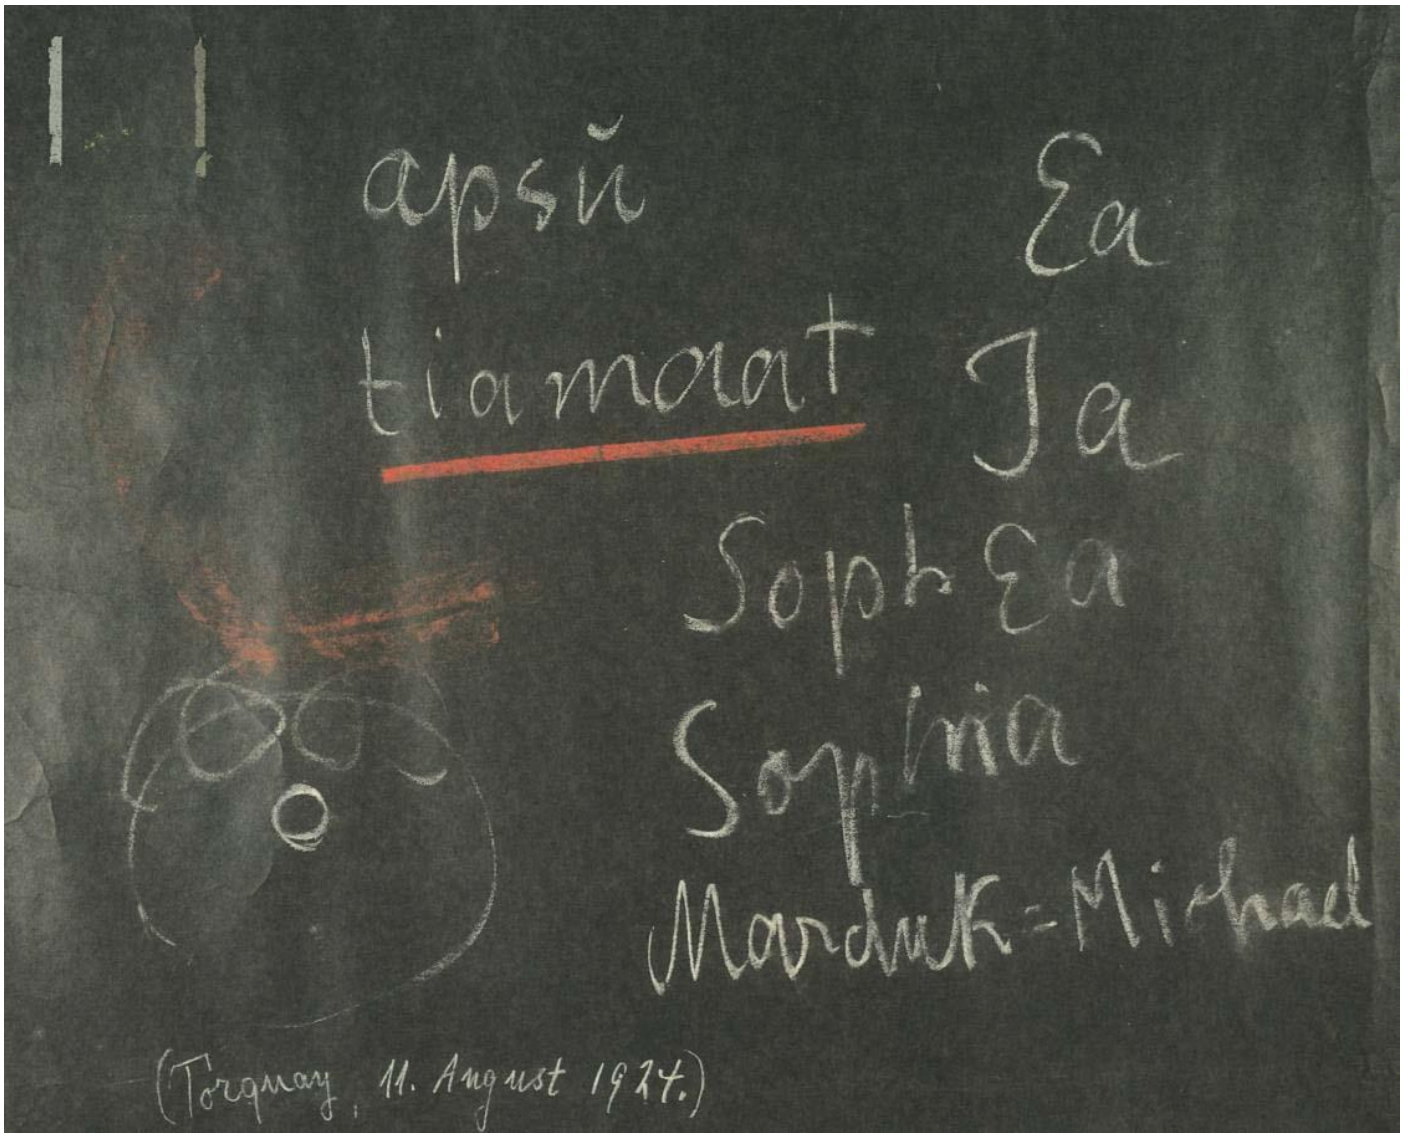 apsŭ Ea
tiamaat Ja
SophEa
Sophia
Marduk=Michael
(Torquay, 11. August 1924.)